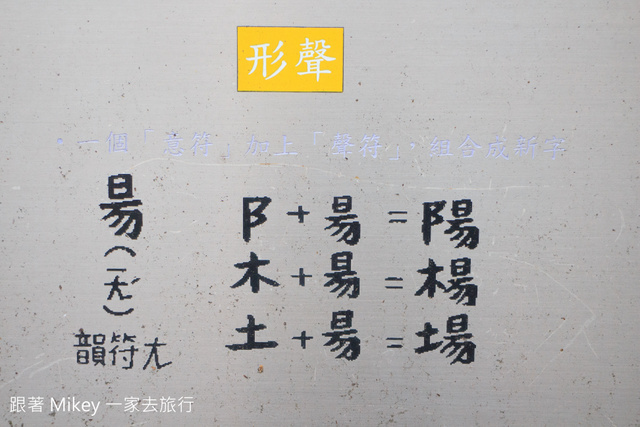 形聲
·一個「意符」加上「聲符」,組合成新字
昜
(ㄧㄤˊ)
韻符ㄤ
阝+昜=陽
木+昜=楊
土+昜=場
跟著 Mikey 一家去旅行